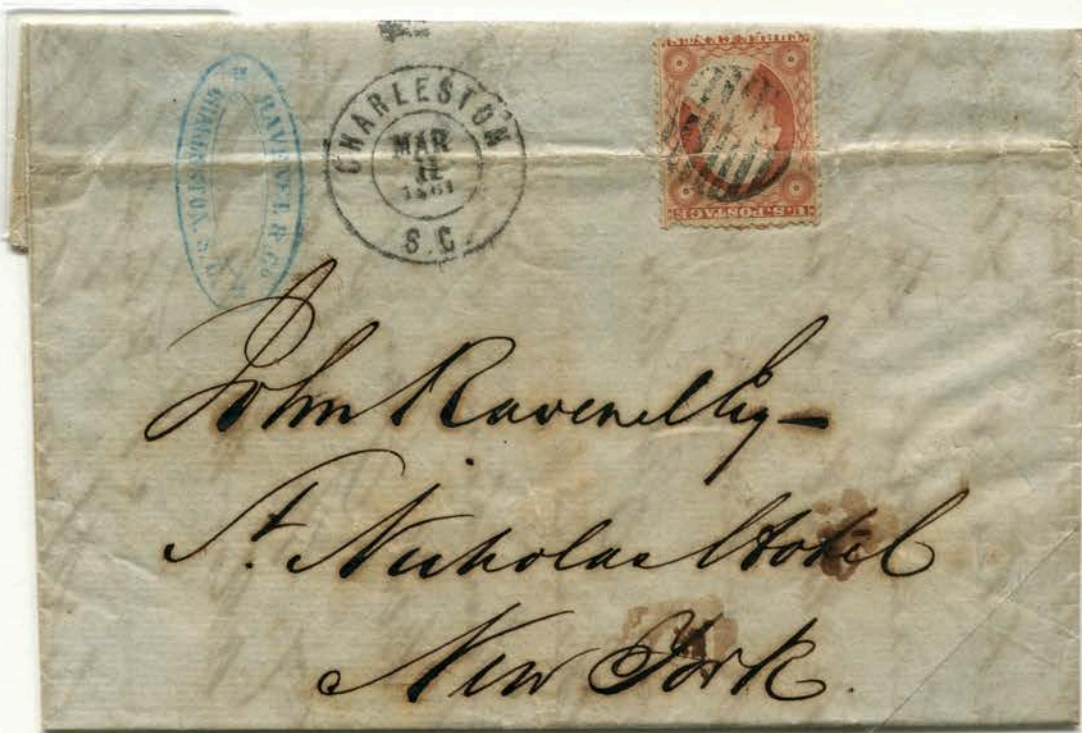 RAVENEL & Co
CHARLESTON, S.C.
CHARLESTON
MAR
1861
S.C.
U.S. POSTAGE
THREE CENTS
John Ravenel Esq –
St. Nicholas Hotel
New York.